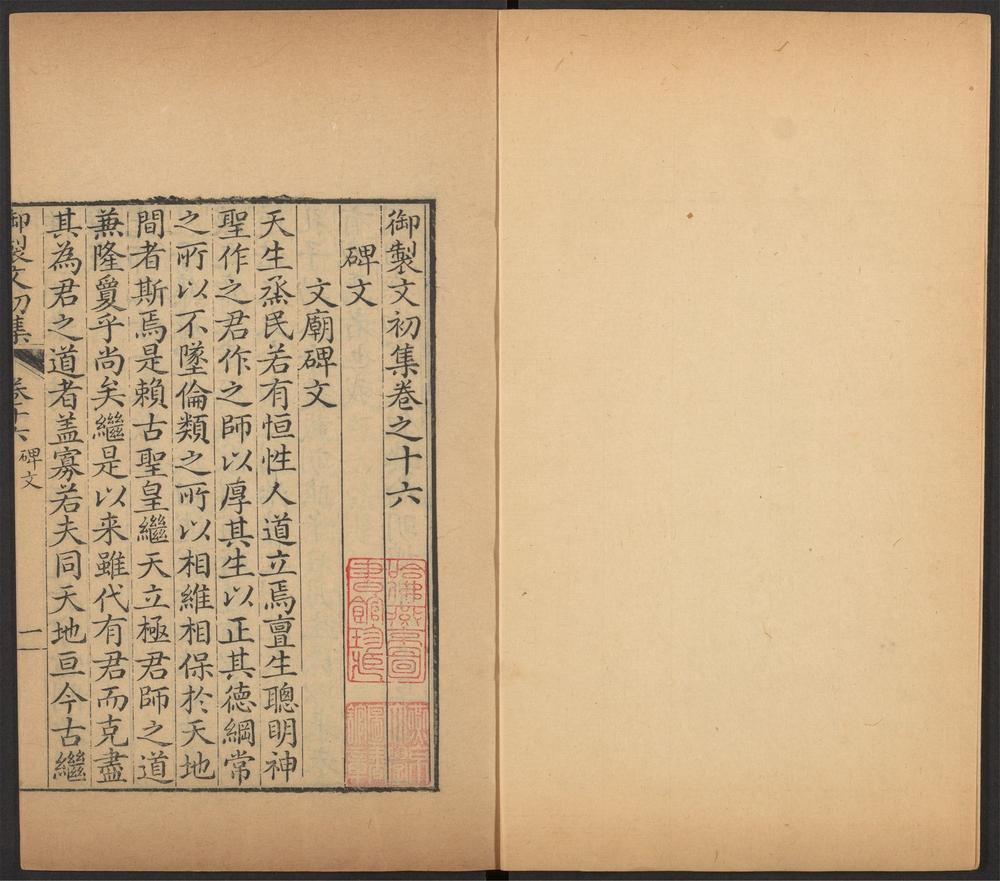 御製文初集卷之十六
碑文
文廟碑文
天生烝民若有恒性人道立焉亶生聰明神
聖作之君作之師以厚其生以正其德綱常
之所以不墜倫類之所以相維相保於天地
間者斯焉是賴古聖皇繼天立極君師之道
兼隆夐乎尚矣繼是以来雖代有君而克盡
其為君之道者盖寡若夫同天地亘今古繼
御製文初集 卷十六 碑文 一
哈佛燕京圖
書館珍藏